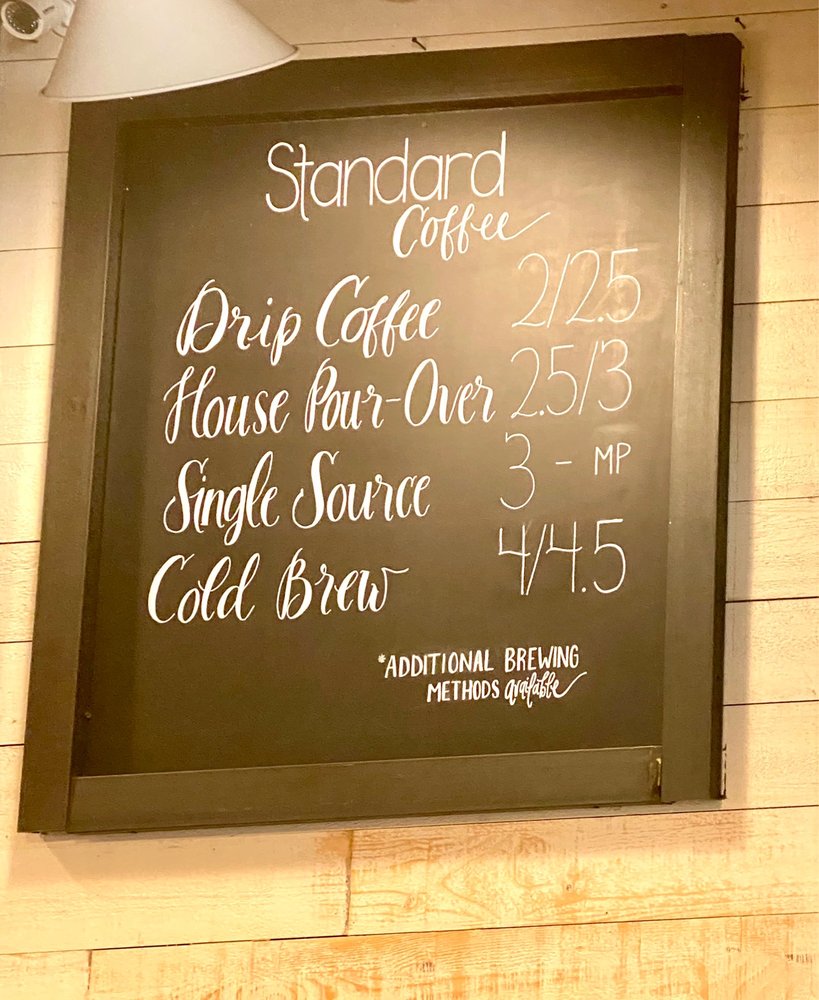 Standard
Coffee
Drip Coffee 2/2.5
House Pour-Over 2.5/3
Single Source 3 - MP
Cold Brew 4/4.5
*ADDITIONAL BREWING
METHODS available